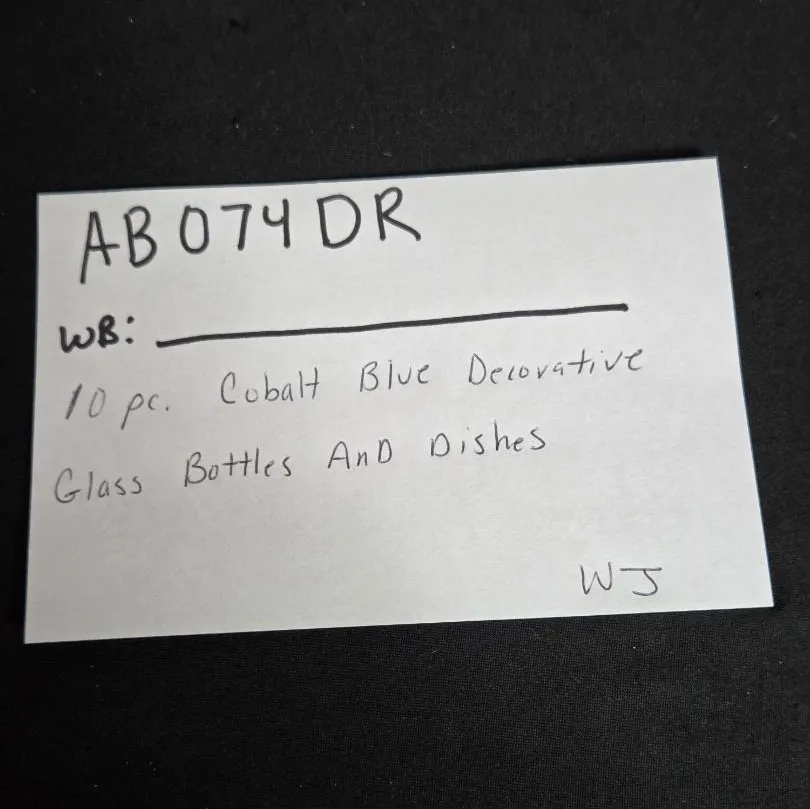 AB074DR
WB:
10 pc. Cobalt Blue Decorative
Glass Bottles AnD Dishes
WJ